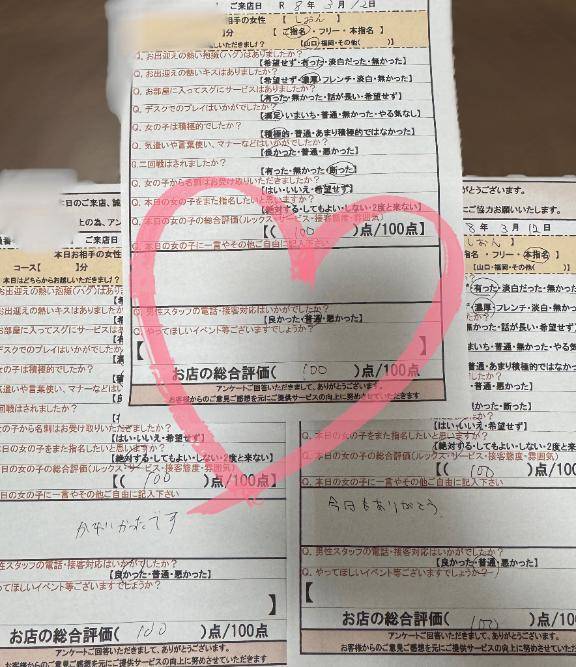 ご来店日 R 8年 3月 12日
相手の女性 【 しおん 】
】分 【ご指名・フリー・本指名】
いただきましたか? 【山口・福岡・その他( )】
Q. お出迎えの熱い抱擁(ハグ)はありましたか?
【希望せず・有った・淡白だった・無かった】
Q. お出迎えの熱いキスはありましたか?
【希望せず・濃厚・フレンチ・淡白・無かった】
Q. お部屋に入ってスグにサービスはありましたか?
【有った・無かった・話が長い・希望せず】
Q. デスクでのプレイはいかがでしたか?
【満足・いまいち・普通・無かった・やる気なし】
Q. 女の子は積極的でしたか?
【積極的・普通・あまり積極的ではなかった】
Q. 気遣いや言葉使い、マナーなどはいかがでしたか?
【良かった・普通・悪かった】
Q. 二回戦はされましたか?
【有った・無かった・断った】
Q. 女の子から名刺はお受け取りいただきましたか?
【はい・いいえ・希望せず】
Q. 本日の女の子をまた指名したいと思いますか?
【絶対する・してもよい・しない・2度と来ない】
Q. 本日の女の子の総合評価(ルックス・サービス・接客態度・雰囲気)
【( 100 )点/100点】
Q. 本日の女の子に一言やその他ご自由に記入下さい
Q. 男性スタッフの電話・接客対応はいかがでしたか?
【良かった・普通・悪かった】
Q. やってほしいイベント等ございますでしょうか?
【 】
お店の総合評価( 100 )点/100点
アンケートご回答いただきまして、ありがとうございます。
お客様からのご意見ご感想を元にご提供サービスの向上に努めさせていただきます
本日のご来店、誠
上の為、アン
ご来店日
本日お相手の女性
コース【 】分
本日はどちらからお越しいただきましたか?
お出迎えの熱い抱擁(ハグ)は
お出迎えの熱いキスはありま
お部屋に入ってスグにサービスは
デスクでのプレイはいかがでし
女の子は積極的でしたか?
気遣いや言葉使い、マナーなどはい
二回戦はされましたか?
女の子から名刺はお受け取りいただきましたか?
【はい・いいえ・希望せず】
本日の女の子をまた指名したいと思いますか?
【絶対する・してもよい・しない・2度と来ない】
本日の女の子の総合評価(ルックス・サービス・接客態度・雰囲気)
【( 100 )点/100点】
日の女の子に一言やその他ご自由に記入下さい
かわいかったです
男性スタッフの電話・接客対応はいかがでしたか?
【良かった・普通・悪かった】
やってほしいイベント等ございますでしょうか?
】
お店の総合評価( 100 )点/100点
アンケートご回答いただきまして、ありがとうございます。
お客様からのご意見ご感想を元にご提供サービスの向上に努めさせていただきます
がとうございます。
にご協力お願いいたします。
8年 3月 12日
しおん 】
名・フリー・本指名】
【山口・福岡・その他( )】
・有った・淡白だった・無かった】
・濃厚・フレンチ・淡白・無かった】
・無かった・話が長い・希望せず】
まいち・普通・無かった・やる気なし】
・普通・あまり積極的ではなかった】
・普通・悪かった】
かった・断った】
【はい・いいえ・希望せず】
Q. 本日の女の子をまた指名したいと思いますか?
【絶対する・してもよい・しない・2度と来ない】
Q. 本日の女の子の総合評価(ルックス・サービス・接客態度・雰囲気)
【( 100 )点/100点】
Q. 本日の女の子に一言やその他ご自由に記入下さい
今日もありがとう
Q. 男性スタッフの電話・接客対応はいかがでしたか?
【良かった・普通・悪かった】
Q. やってほしいイベント等ございますでしょうか?
【
お店の総合評価( 100 )点/100点
アンケートご回答いただきまして、ありがとうございます。
お客様からのご意見ご感想を元にご提供サービスの向上に努めさせていただきます